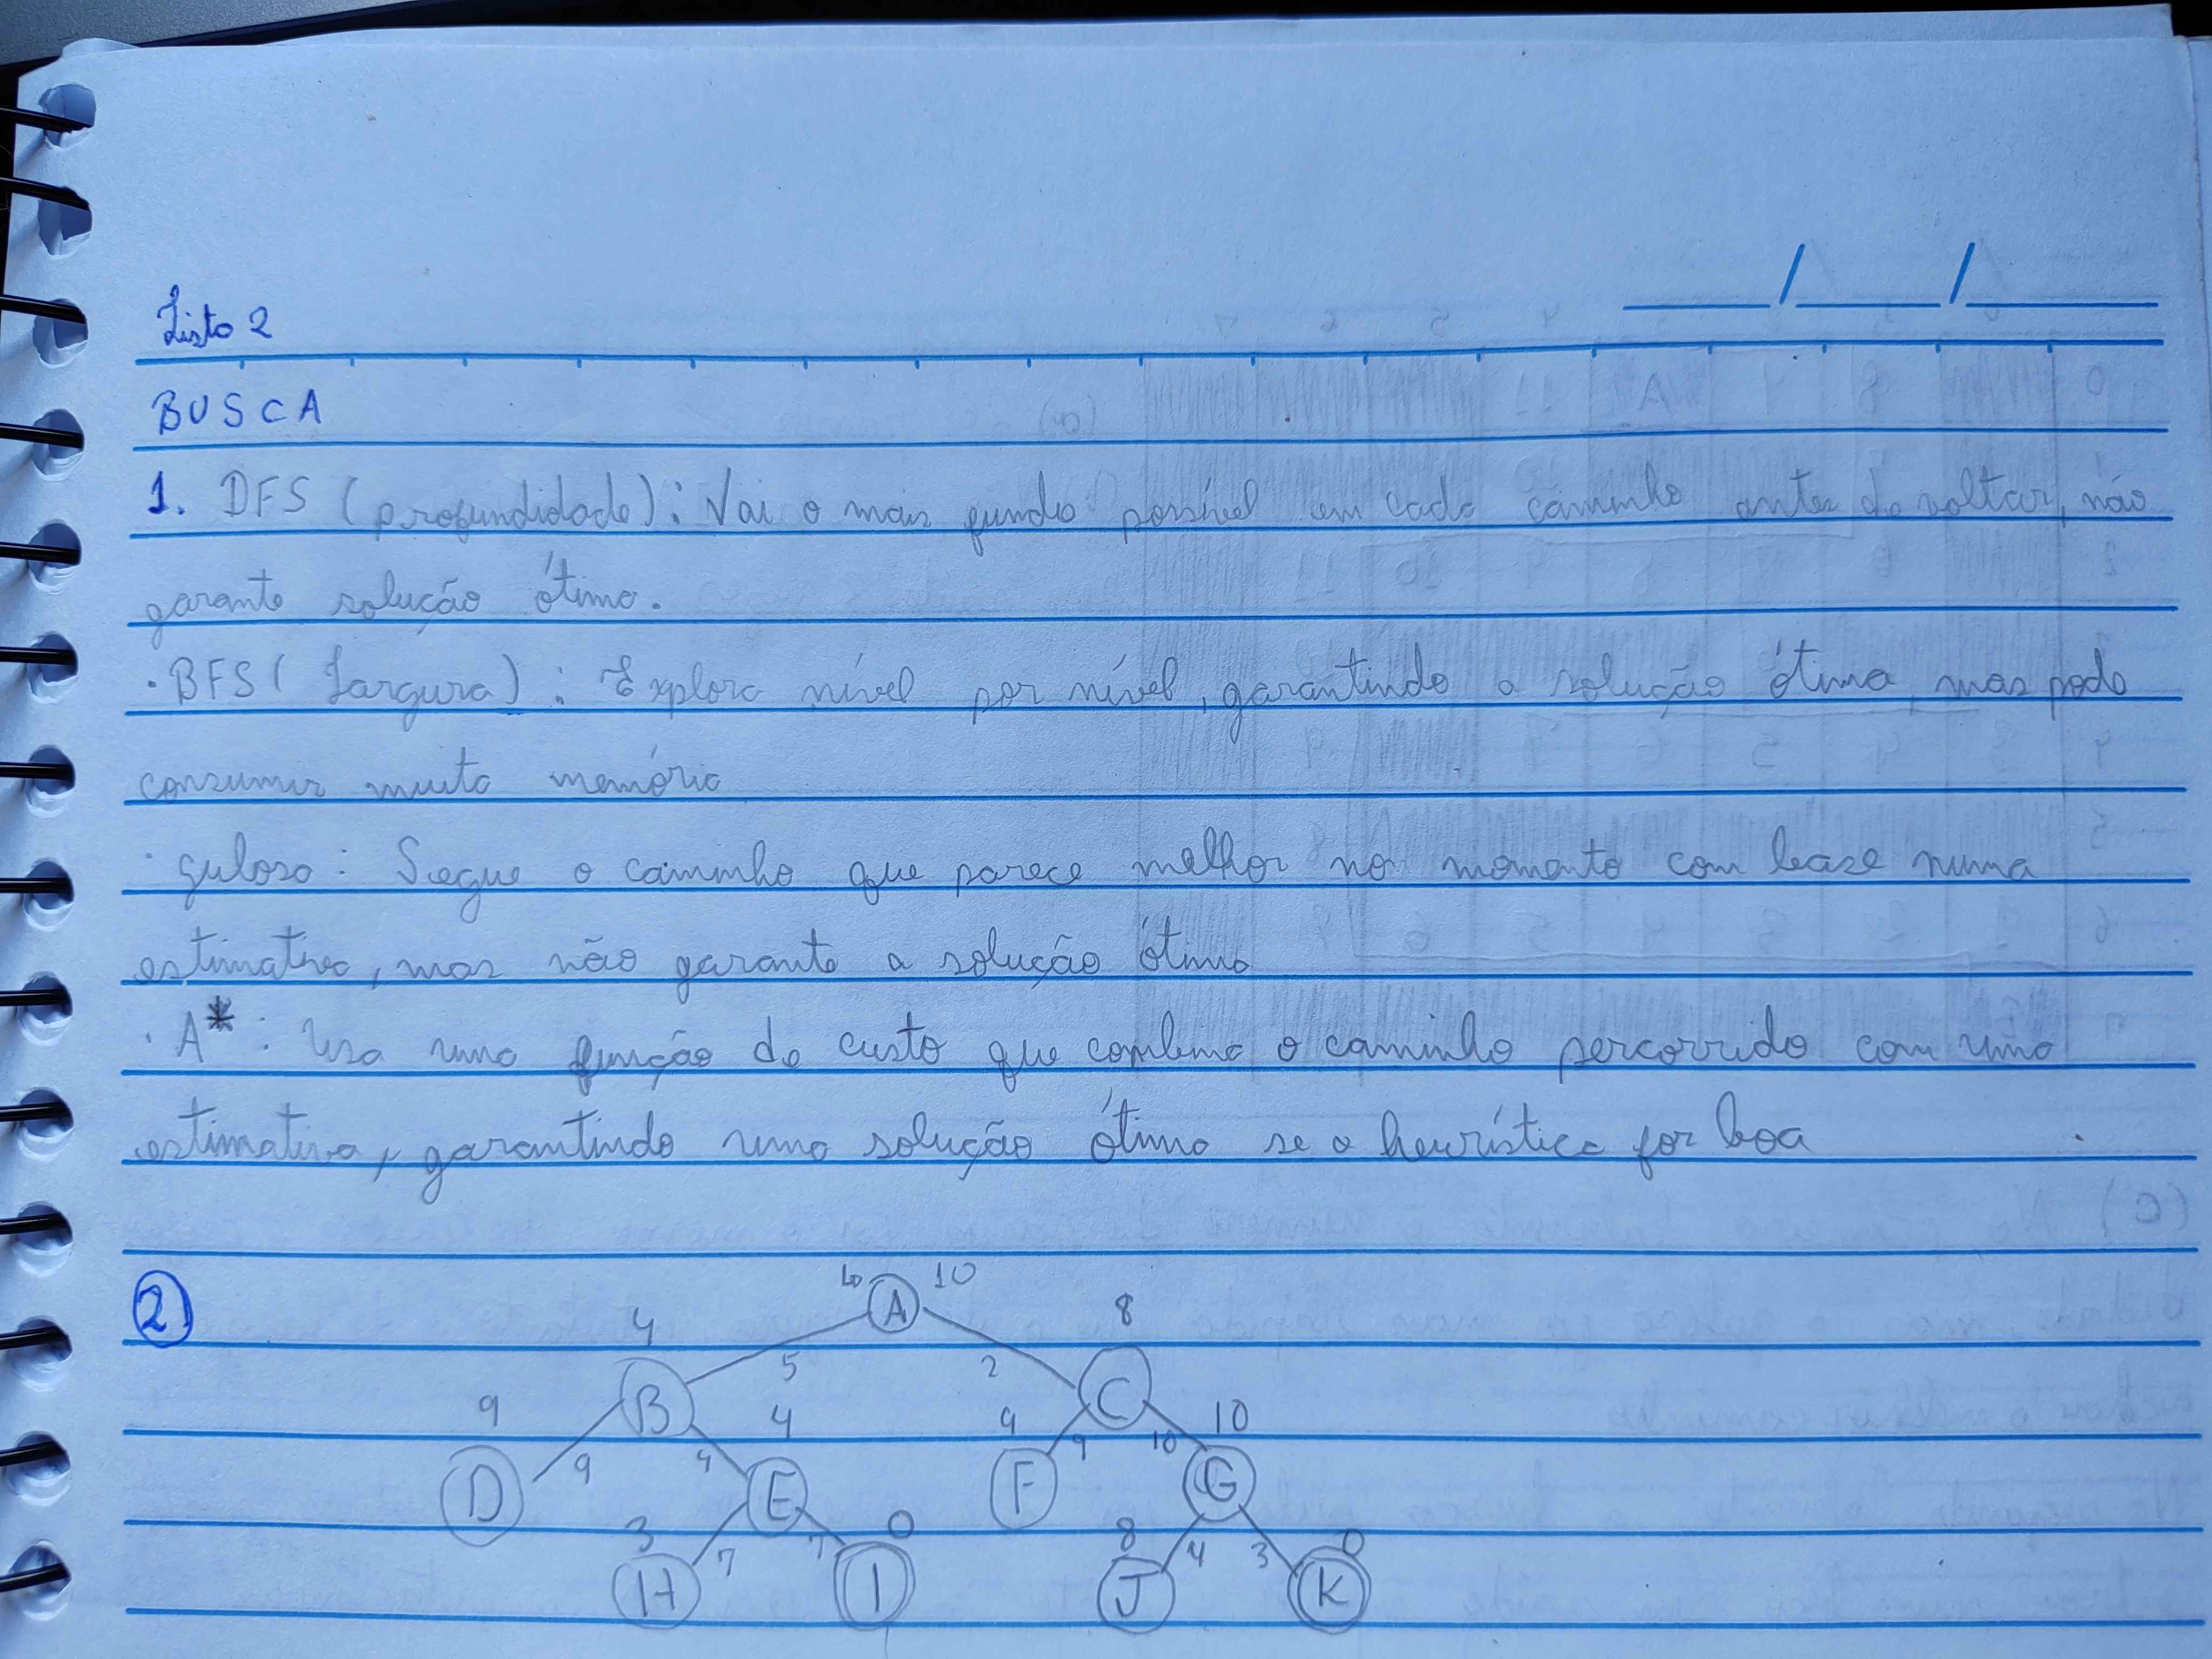 Lista 2
BUSCA
1. DFS (profundidade): Vai o mais fundo possível em cada caminho antes de voltar, não
garante solução ótima.
· BFS (Largura): Explora nível por nível, garantindo a solução ótima, mas pode
consumir muita memória
· gulosa: Segue o caminho que parece melhor no momento com base numa
estimativa, mas não garante a solução ótima
· A*: Usa uma função de custo que combina o caminho percorrido com uma
estimativa, garantindo uma solução ótima se a heurística for boa
2) A 10
4 8
5 2
B C
9 4 9 10
9 4 9 10
D E F G
3 0 8 0
7 7 4 3
H I J K